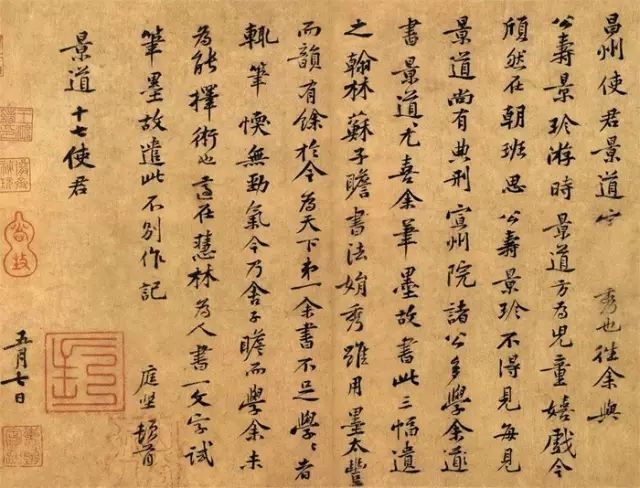 昌州使君景道宗秀也往余與
公壽景珍游時景道方為兒童嬉戲今
頎然在朝班思公壽景珍不得見每見
景道尚有典刑宣州院諸公多學余
書景道尤喜余筆墨故書此三幅遺
之翰林蘇子瞻書法娟秀雖用墨太豐
而韻有餘於今為天下第一余書不足學〻者
輒筆愞無勁氣今乃舍子瞻而學余未
為能擇術也適在慧林為人書一文字試
筆墨故遣此不別作記 庭堅頓首
景道十七使君
五月七日